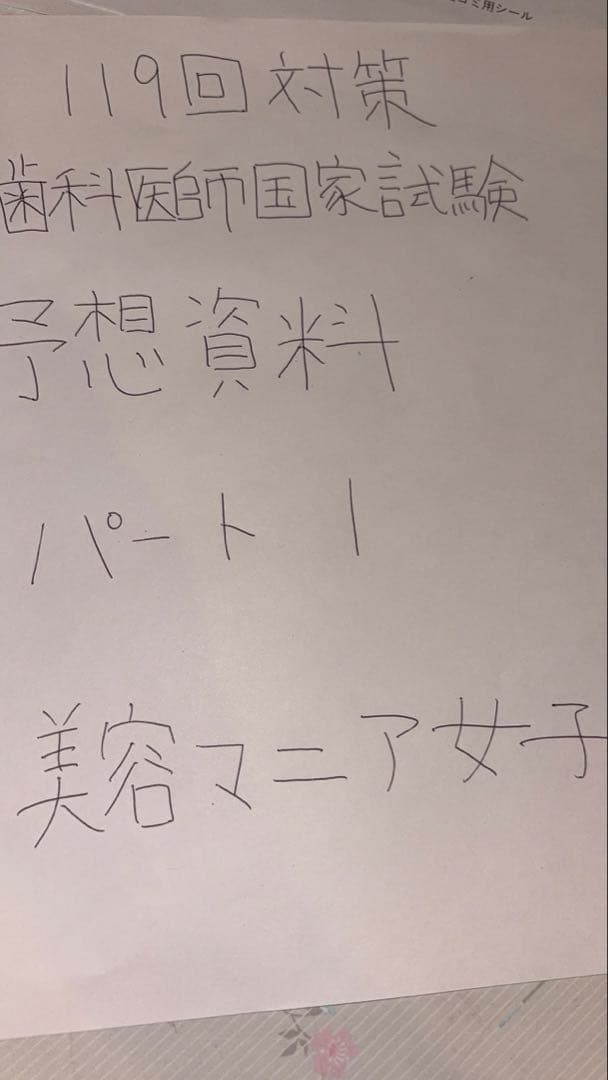 ゴミ用シール
119回対策
歯科医師国家試験
予想資料
パート1
美容マニア女子